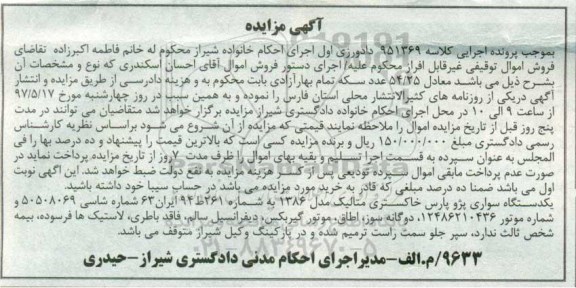 آگهی مزایده
بموجب پرونده اجرایی کلاسه ۹۵۱۳۶۹ دادورزی اول اجرای احکام خانواده شیراز محکوم له خانم فاطمه اکبرزاده تقاضای
فروش اموال توقیفی غیرقابل افراز محکوم علیه/ اجرای دستور فروش اموال آقای احسان اسکندری که نوع و مشخصات آن
بشرح ذیل می باشد معادل ۵۴/۲۵ عدد سکه تمام بهار آزادی بابت محکوم به و هزینه دادرسی از طریق مزایده و انتشار
آگهی دریکی از روزنامه های کثیرالانتشار محلی استان فارس را نموده و به همین سبب در روز چهارشنبه مورخ ۹۷/۵/۱۷
از ساعت ۹ الی ۱۰ در محل اجرای احکام خانواده دادگستری شیراز مزایده برگزار خواهد شد متقاضیان می توانند در مدت
پنج روز قبل از تاریخ مزایده اموال را ملاحظه نمایند قیمتی که مزایده از آن شروع می شود براساس نظریه کارشناس
رسمی دادگستری مبلغ ۱۵۰/۰۰۰/۰۰۰ ریال و برنده مزایده کسی است که بالاترین قیمت را پیشنهاد و ده درصد بها را فی
المجلس به عنوان سپرده به قسمت اجرا تسلیم و بقیه بهای اموال را ظرف مدت روز از تاریخ مزایده پرداخت نماید در
صورت عدم پرداخت مابقی اموال سپرده تودیعی پس از کسر هزینه مزایده به نفع دولت ضبط خواهد شد. این آگهی نوبت
اول می باشد ضمنا ده درصد مبلغی که قادر به خرید مورد مزایده می باشد در حساب سیبا خود داشته باشید.
یکدستگاه سواری پژو پارس خاکستری متالیک مدل ۱۳۸۶ به شماره ۲۶۱ط۹۴ ایران۶۳ شماره شاسی ۵۰۵۰۸۰۶۹ و
شماره موتور ۱۲۴۸۶۲۱۰۴۳۶، دوگانه سوز، اطاق، موتور گیربکس، دیفرانسیل سالم، فاقد باطری، لاستیک ها فرسوده، بیمه
شخص ثالث ندارد، سپر جلو سمت راست ترمیم شده و در پارکینگ وکیل شیراز متوقف می باشد.
۹۶۳۳/م.الف-مدیراجرای احکام مدنی دادگستری شیراز-حیدری